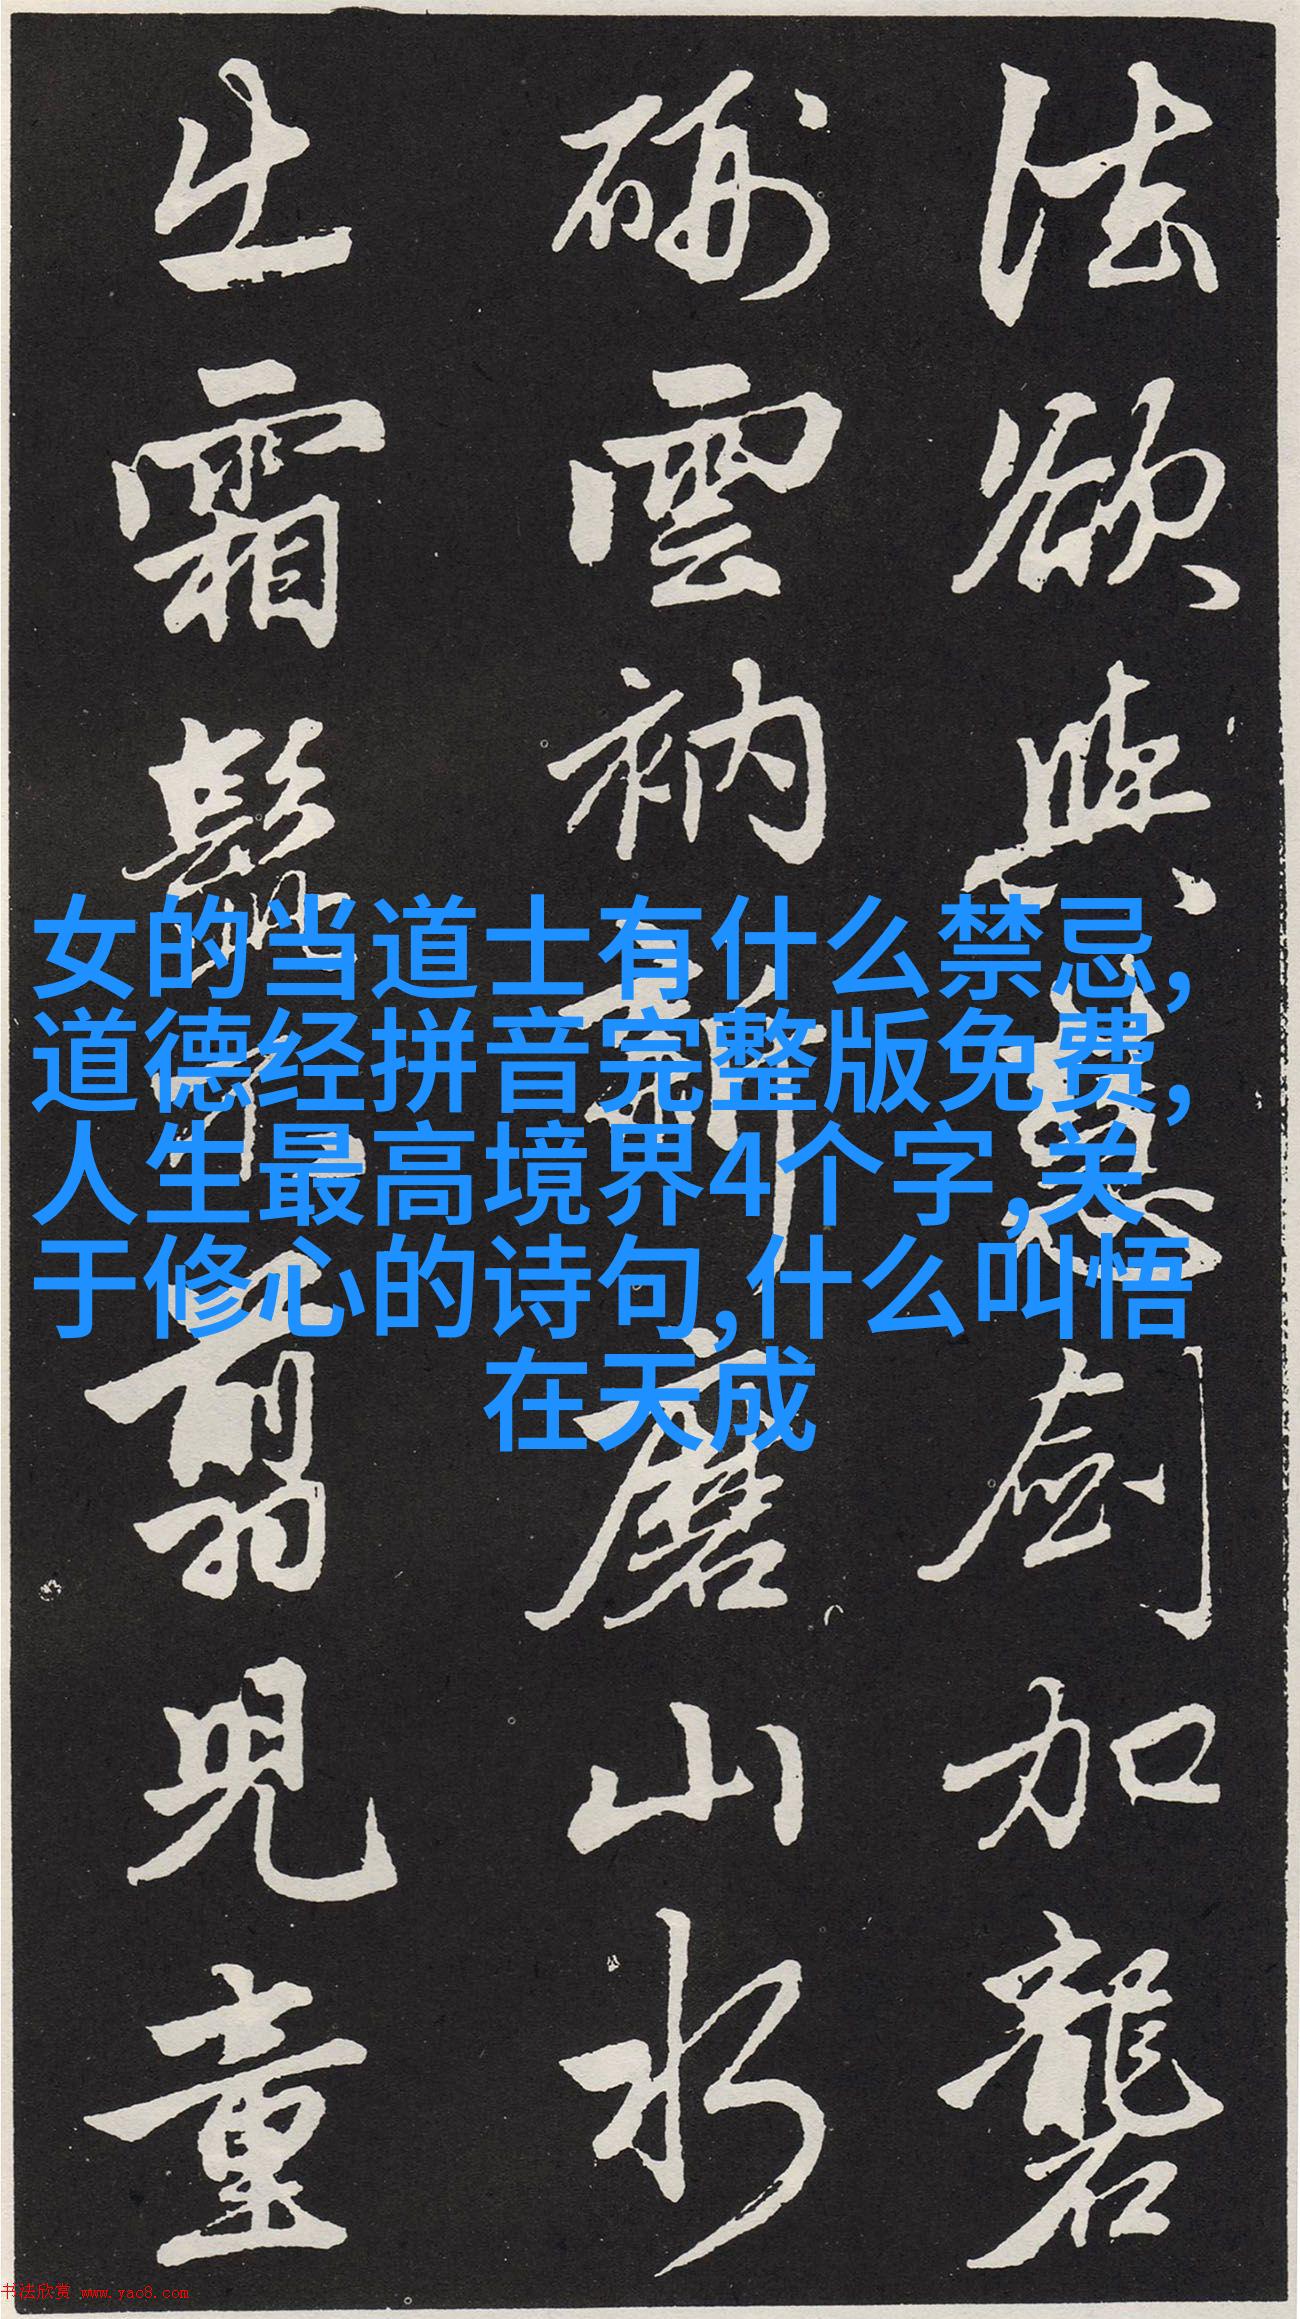 法欲與慧劍加礱
雲衲新磨山水
出霜髭不翦兒童
女的当道士有什么禁忌,
道德经拼音完整版免费,
人生最高境界4个字,关
于修心的诗句,什么叫悟
在天成
书法欣赏 www.yac8.com